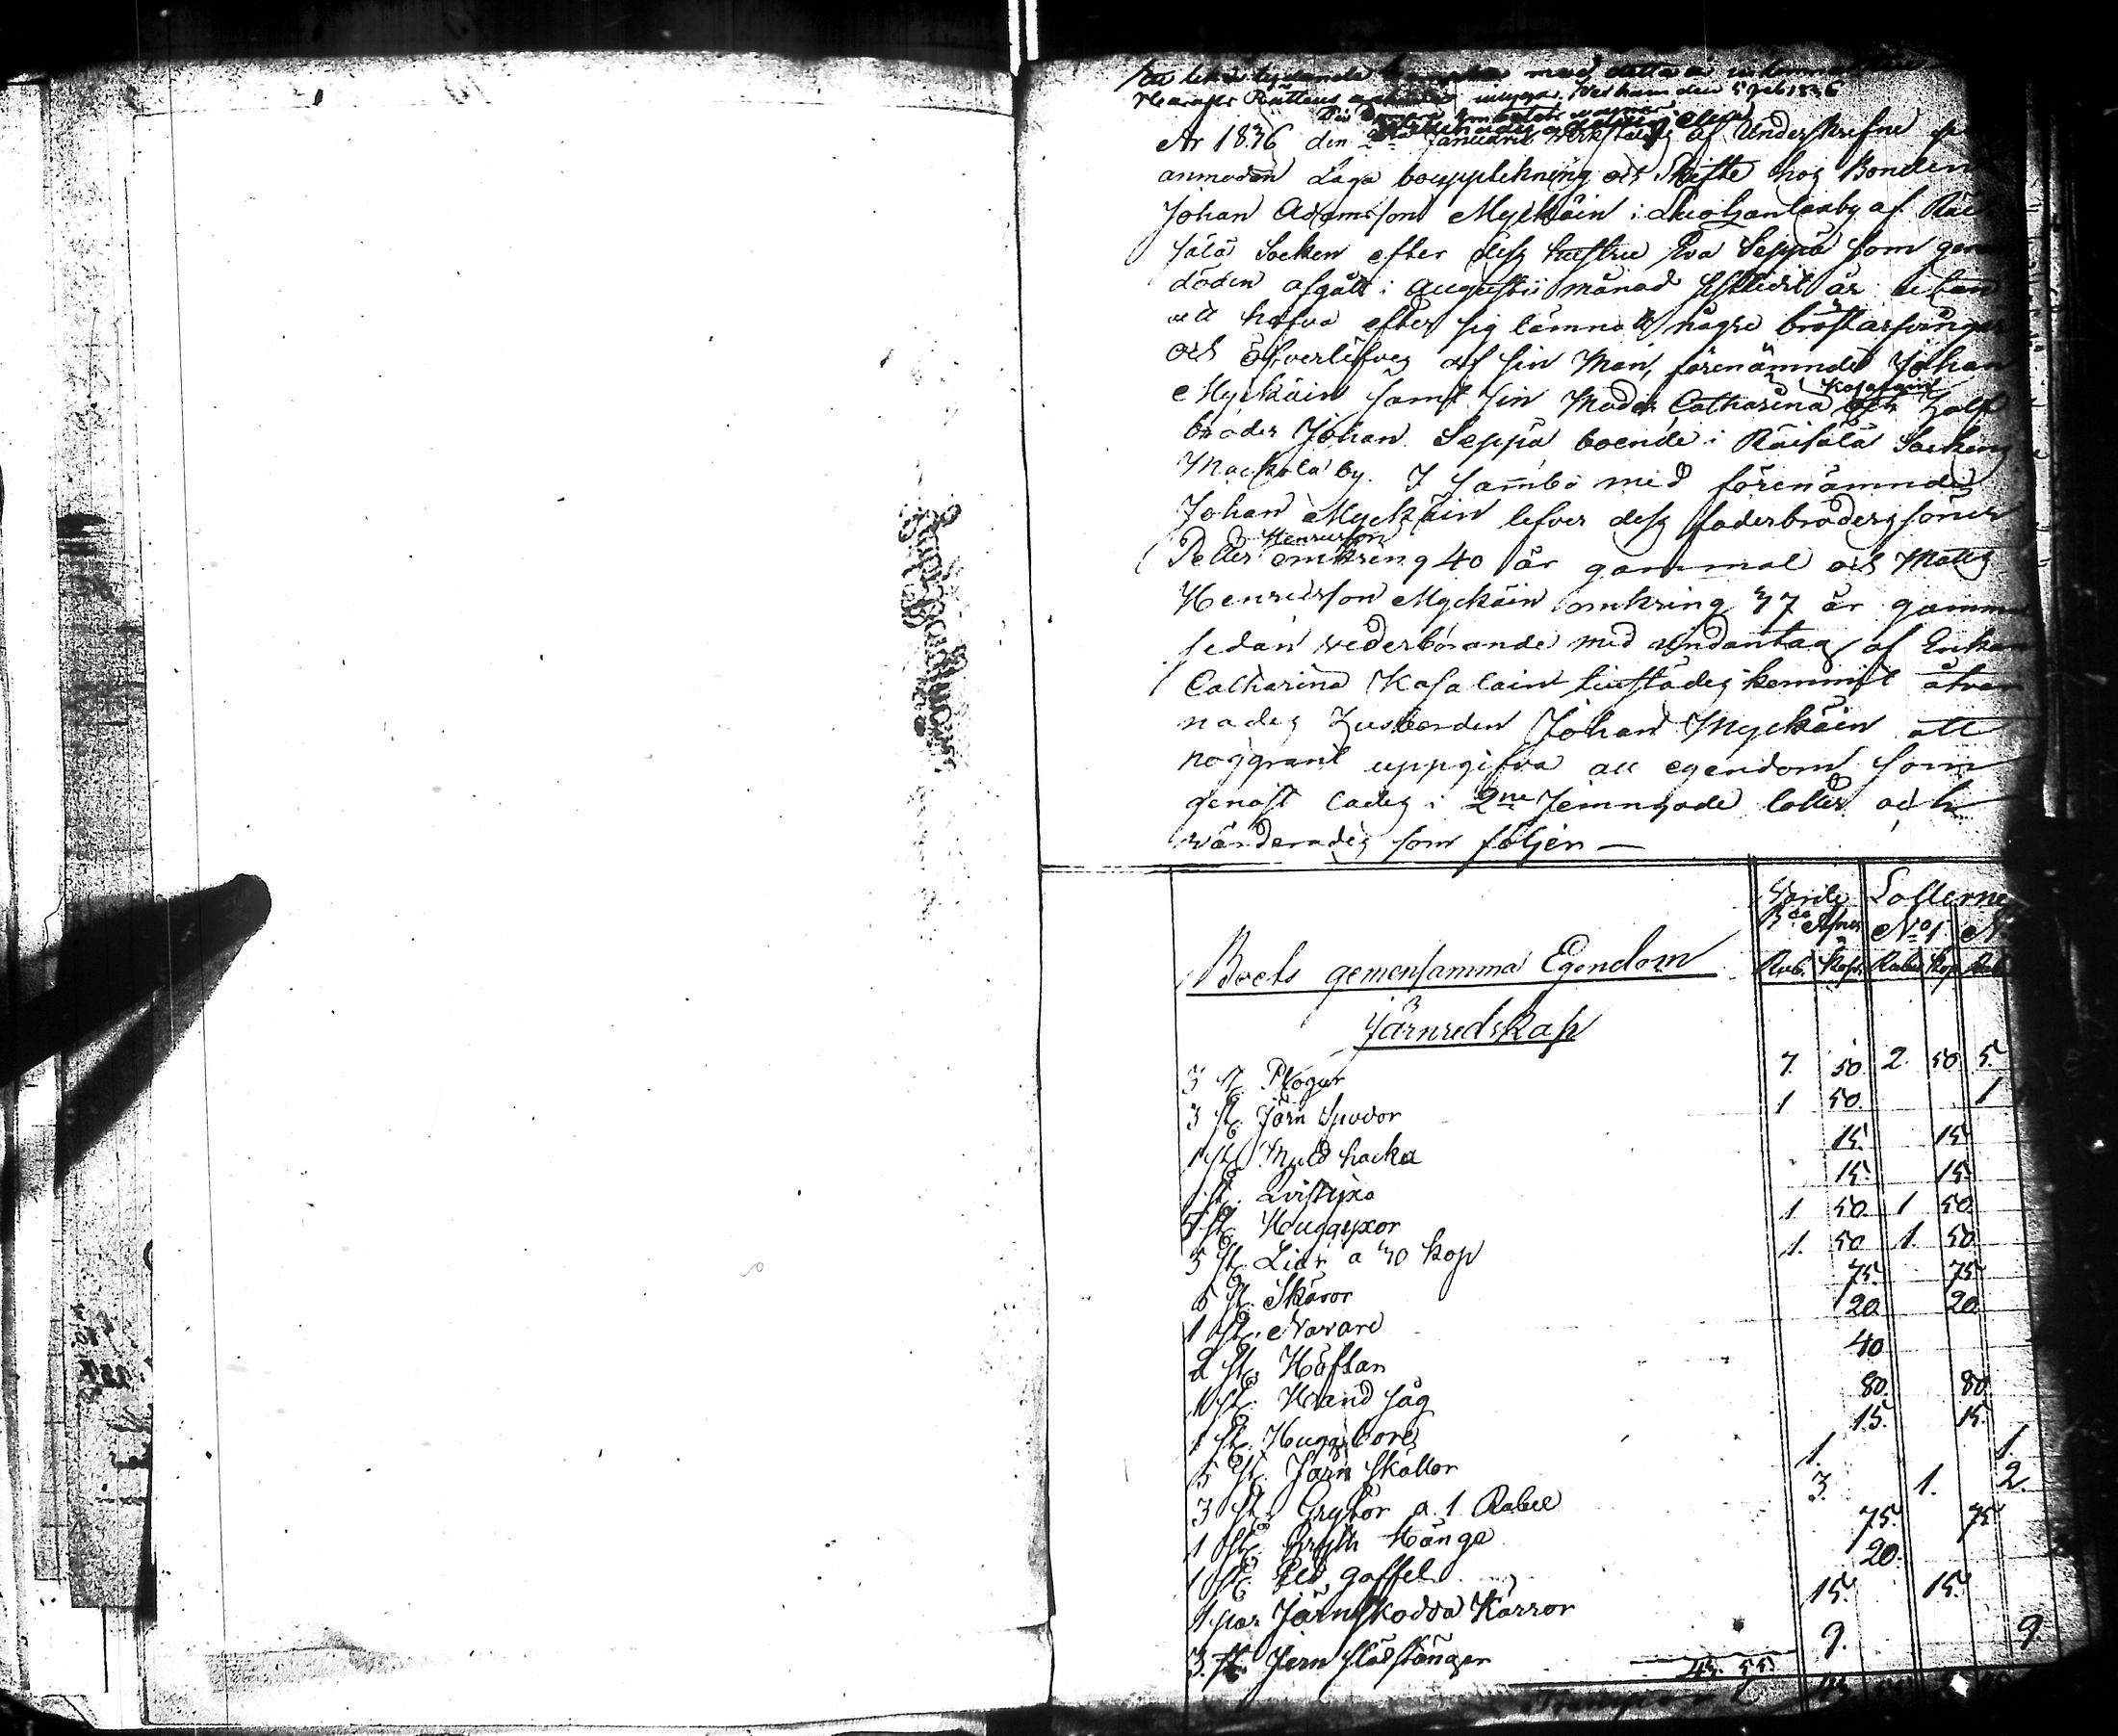 med detta
Rättens intygar. den 1836
År 1836 den Januarii af Underskrefne
anmodan Laga bouppteckning och Skifte hos Bonden
Johan Adamsson Myckäin i by af Räi
sälä Socken efter dess hustru Eva Seppä som gen
döden afgått i Augustii månad sistledit år utan
att hafva efter sig lämnatt några bröstarfvingar
och öfverlefves af sin Man, förenämnde Johan
Myckäin samt sin Moder Catharina Kasalain och half
broder Johan Seppä boende i Räisälä Sockens
by. I sambo med förenämnde
Johan Myckäin lefver dess faderbroders söner
Petter Henricsson omkring 40 år gammal och Matts
Henricsson Myckäin omkring 37 år gamm
sedan vederbörande med undantag af Enkan
Catharina Kasalain tillstädes kommit åtvar
nades Husbonden Johan Myckäin att
noggrant uppgifva all egendom som
genast lades i 2ne Jemngode lotter och
wärderades som följer —
Värde Lotterne
Bco Assner No 1 N
Boets gemensamma Egendom Rub. Kop. Rubel Kop Rub
Järnredskap
3 st. Plogar 7. 50. 2. 50 5.
3 st. Järn Spador 1 50. 1
1 st. Muld hacka 15. 15
1 st. Qvistyxa 15. 15.
5 st. Huggyxor 1 50. 1 50.
5 st. Liar a 30 kop 1. 50 1. 50.
5 st. Skäror 75. 75
1 st. Navare 20. 20
2 st. Höftan 40
1 st. Hand såg 80. 80.
1 st. Huggbore 15. 15.
5 st. Järn skållor 1. 1.
3 st. Grytor a. 1 Rubel 3. 1. 2.
1 st. Gryth Hänge 75. 75
1 st. Eld gaffel 20.
1 par Järnskodda Kärror 15. 15.
3. st Jern slåstänger 9. 9.
43. 55.